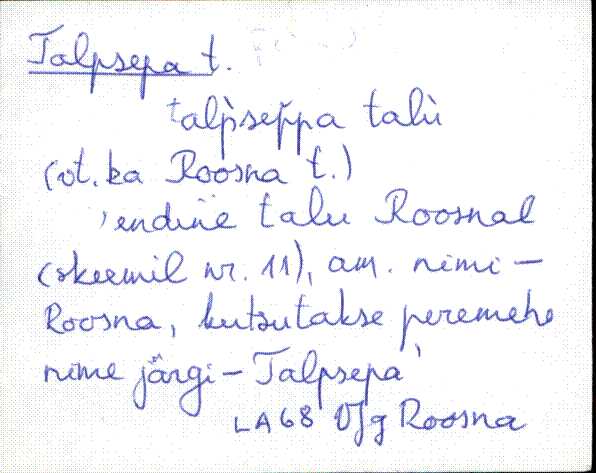 Talpsepa t.
talp̀sep̆pa talù
(vt. ka Roosna t.)
'endine talu Roosnal
(skeemil nr. 11), am. nimi –
Roosna, kutsutakse peremehe
nime järgi – Talpsepa'
LA68 VJg Roosna